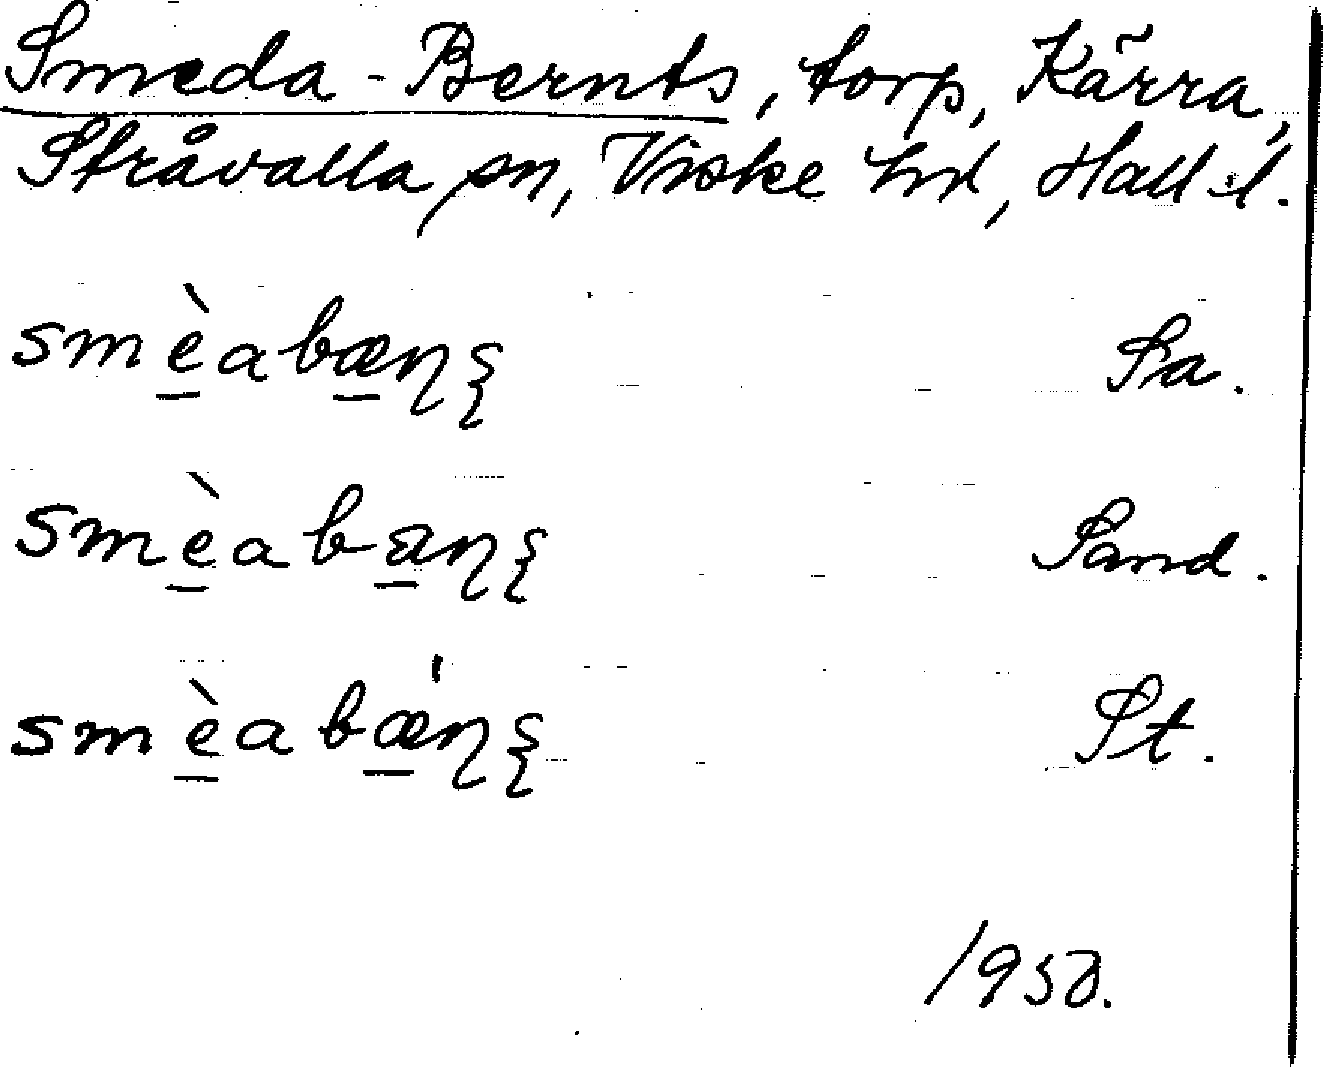 Smeda-Bernts, torp, Kärra,
Stråvalla sn, Viske hd, Hall. l.
smè̠abæ̠ɳʂ Sa.
smè̠aba̠ɳʂ Sand.
smè̠abǽ̠ɳʂ St.
1950.